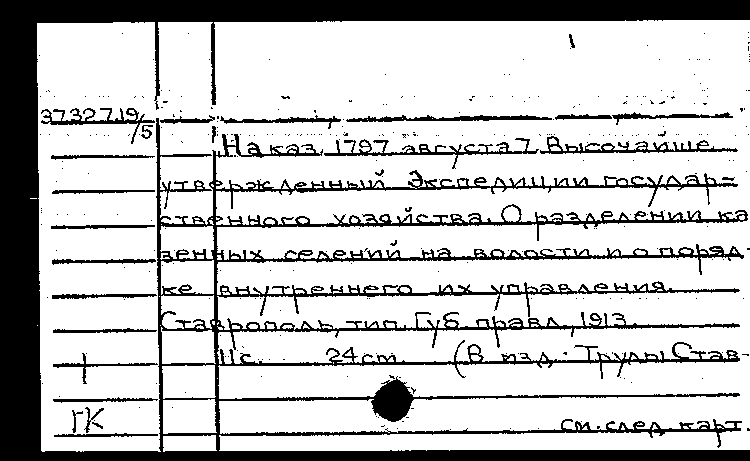 3732719/5
Наказ, 1797 августа 7, Высочайше
утвержденный Экспедиции государ=
ственного хозяйства. О разделении ка
зенных селений на волости и о поряд-
ке внутреннего их управления.
Ставрополь, тип. Губ. правл., 1913.
11 с. 24 cm. (В изд.: Труды Став-
ГК
см. след. карт.